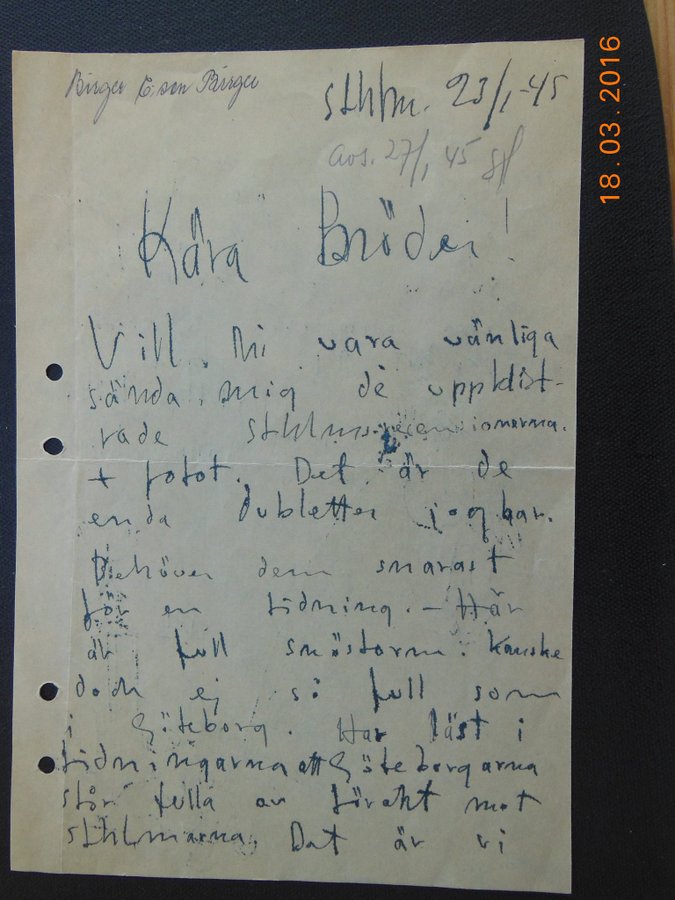 Birger E:son Birger
Sthlm. 23/1-45
avs. 27/1 45
Kära Bröder!
Vill Ni vara vänliga
sända mig de uppklist-
rade Sthlmsrecensionerna.
+ fotot. Det är de
enda dubletter jag har.
Behöver dem snarast
för en tidning. – Här
är full snöstorm. Kanske
dock ej så full som
i Göteborg. Har läst i
tidningarna att Göteborgarna
står fulla av förakt mot
sthlmarna. Det är vi
18.03.2016